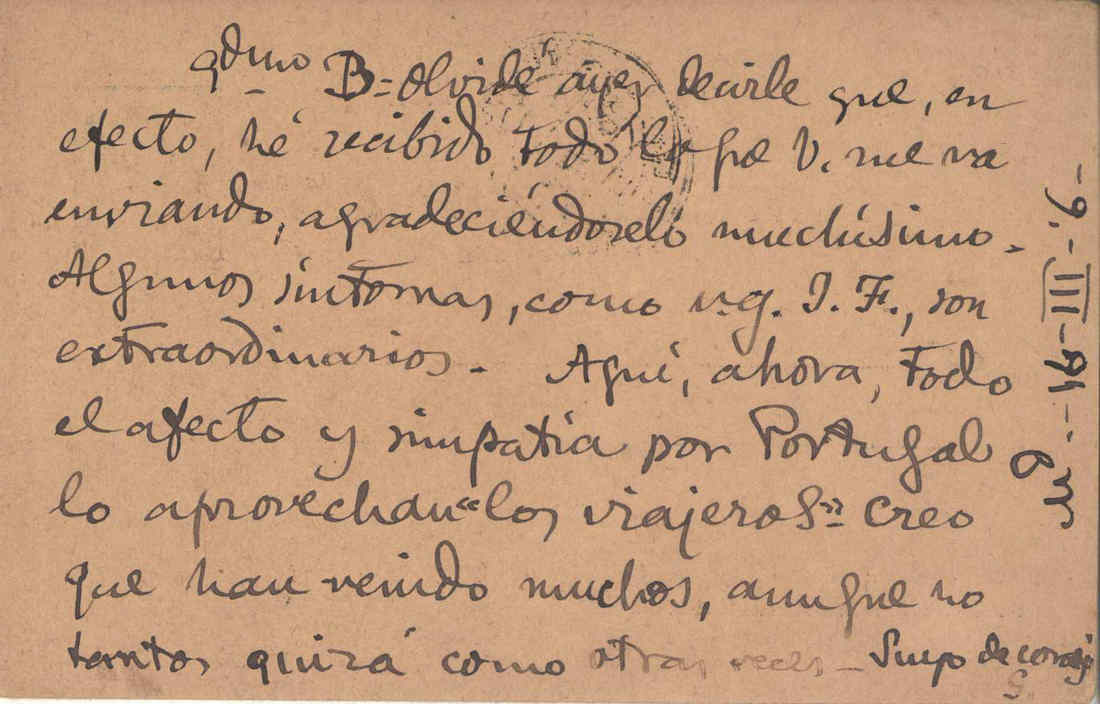 qdmo B = olvidé ayer decirle que, en
efecto, hé recibido todo lo que V. me va
enviando, agradeciéndoselo muchísimo.
Algunos síntomas, como v.g. I. F., son
extraordinarios. Aquí, ahora, todo
el afecto y simpatía por Portugal
lo aprovechan "los viajeros" creo
que han venido muchos, aunque no
tantos quizá como otras veces - Suyo de corazón
G.
-9.-III-94-